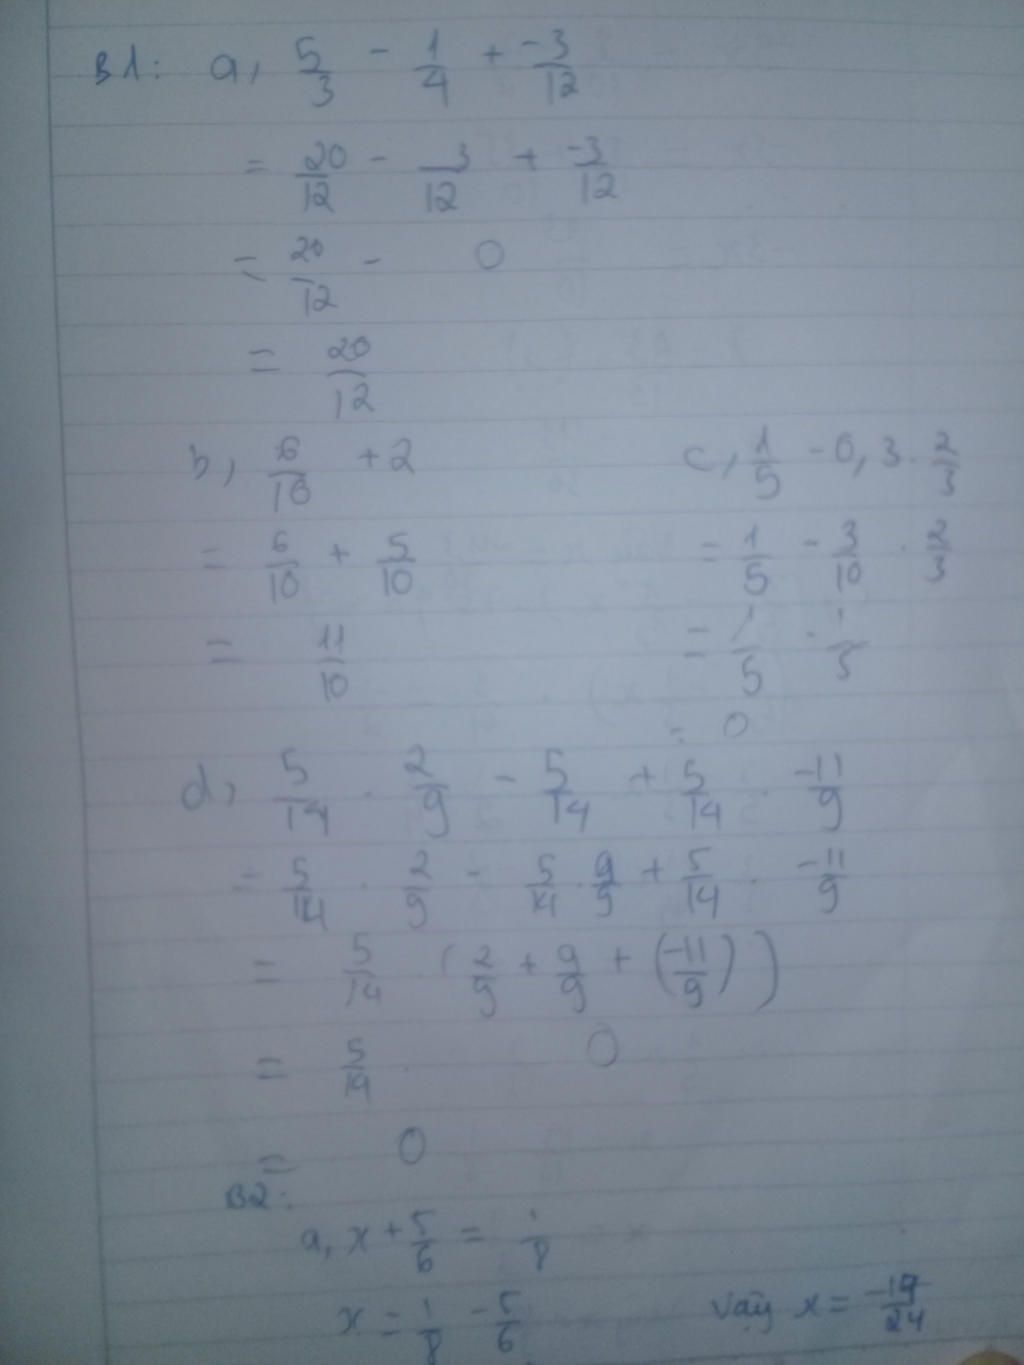 B1: a, 5/3 - 1/4 + -3/12
= 20/12 - 3/12 + -3/12
= 20/12 - 0
= 20/12
b, 6/10 + 2
= 6/10 + 5/10
= 11/10
c, 1/5 - 0,3 . 2/3
= 1/5 - 3/10 . 2/3
= 1/5 - 1/5
= 0
d, 5/14 . 2/9 - 5/14 + 5/14 . -11/9
= 5/14 . 2/9 - 5/14 . 9/9 + 5/14 . -11/9
= 5/14 . (2/9 + 9/9 + (-11/9))
= 5/14 . 0
= 0
B2:
a, x + 5/6 = 1/8
x = 1/8 - 5/6
Vậy x = -17/24